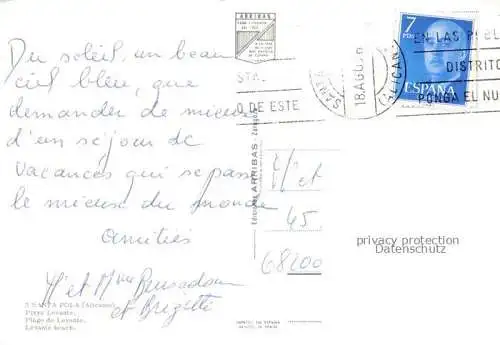 Du soleil, un beau
ciel bleu, que
demander de mieux
d'un séjour de
vacances qui se passe
le mieux du monde
amitiés
Mr et Mme
et Brigitte
5 SANTA POLA (Alicante)
Playa Levante.
Plage de Levante.
Levante beach.
ARRIBAS
ARRIBAS - Zaragoza
7
PTAS
ESPAÑA
EN LAS POBL
STA.
DISTRITO
O DE ESTE
PONGA EL NU
18.AGO
ALICAN
Mr et
45
68200
privacy protection
Datenschutz